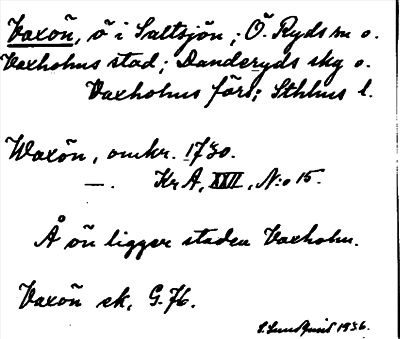 Vaxön, ö i Saltsjön; Ö. Ryds sn o.
Vaxholms stad; Danderyds skg o.
Vaxholms förs; Sthlms l.
Waxön, omkr. 1730.
—. KrA, XXII, N:o 15.
Å ön ligger staden Vaxholm.
Vaxön ek, G. 76.
S. Lundqvist 1936.